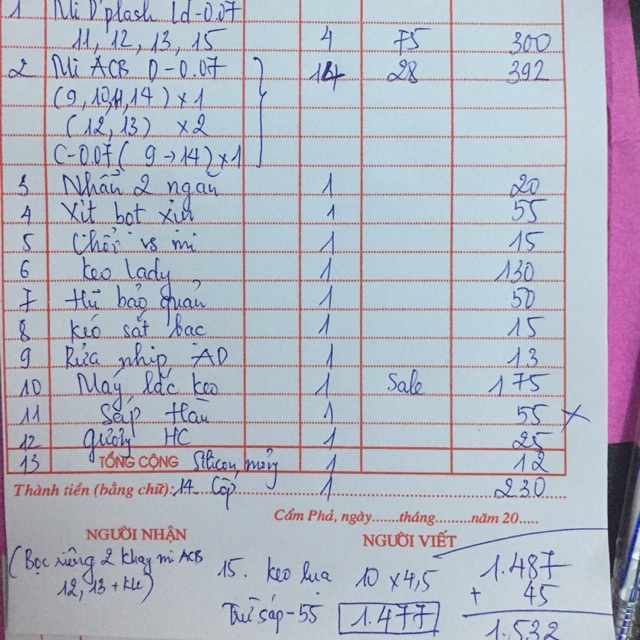 1 Mi D'plash Ld-0.07
11, 12, 13, 15 4 75 300
2 Mi ACB D-0.07 14 28 392
(9, 10, 11, 14) x 1
(12, 13) x 2
C-0.07 ( 9 → 14) x 1
3 Nhẫn 2 ngăn 1 20
4 Xịt bọt xin 1 55
5 Chổi vs mi 1 15
6 keo lady 1 130
7 Hũ bảo quản 1 50
8 kéo sắt bạc 1 15
9 Rửa nhíp AD 1 13
10 Máy lắc keo 1 Sale 175
11 Sáp Hàn 1 55 x
12 gương HC 1 25
13 TỔNG CỘNG Silicon mỏng 1 12
Thành tiền (bằng chữ): 14. Cốp 1 230
Cẩm Phả, ngày......tháng.........năm 20.....
NGƯỜI NHẬN NGƯỜI VIẾT
(Bọc riêng 2 khay mi ACB
12, 13 + kk)
15. keo lụa 10 x 4,5
Trừ sáp - 55 1.477
1.487
+ 45
1.532